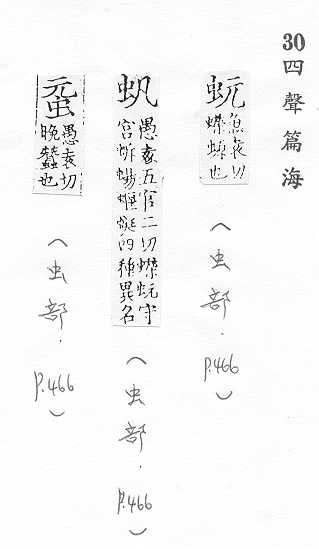 30 四聲篇海
蚖
愚袁切
蠑蚖也
(虫部.P.466)
愚袁五官二切蠑蚖守
宫蜥蜴蝘蜓四種異名
(虫部.P.466)
愚袁切
晚蠶也
(虫部.P.466)